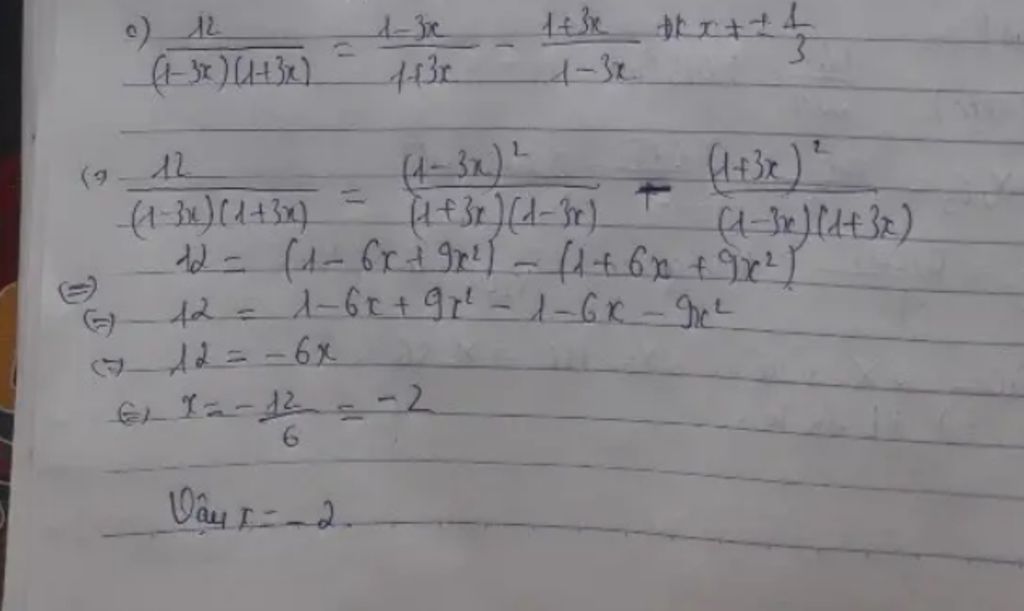 c) 12/((1-3x)(1+3x)) = (1-3x)/(1+3x) - (1+3x)/(1-3x) đk x ≠ ± 1/3
(=) 12/((1-3x)(1+3x)) = (1-3x)²/((1+3x)(1-3x)) - (1+3x)²/((1-3x)(1+3x))
(=) 12 = (1-6x+9x²) - (1+6x+9x²)
(=) 12 = 1-6x+9x² - 1-6x-9x²
(=) 12 = -6x
(=) x = -12/6 = -2
Vậy x = -2.